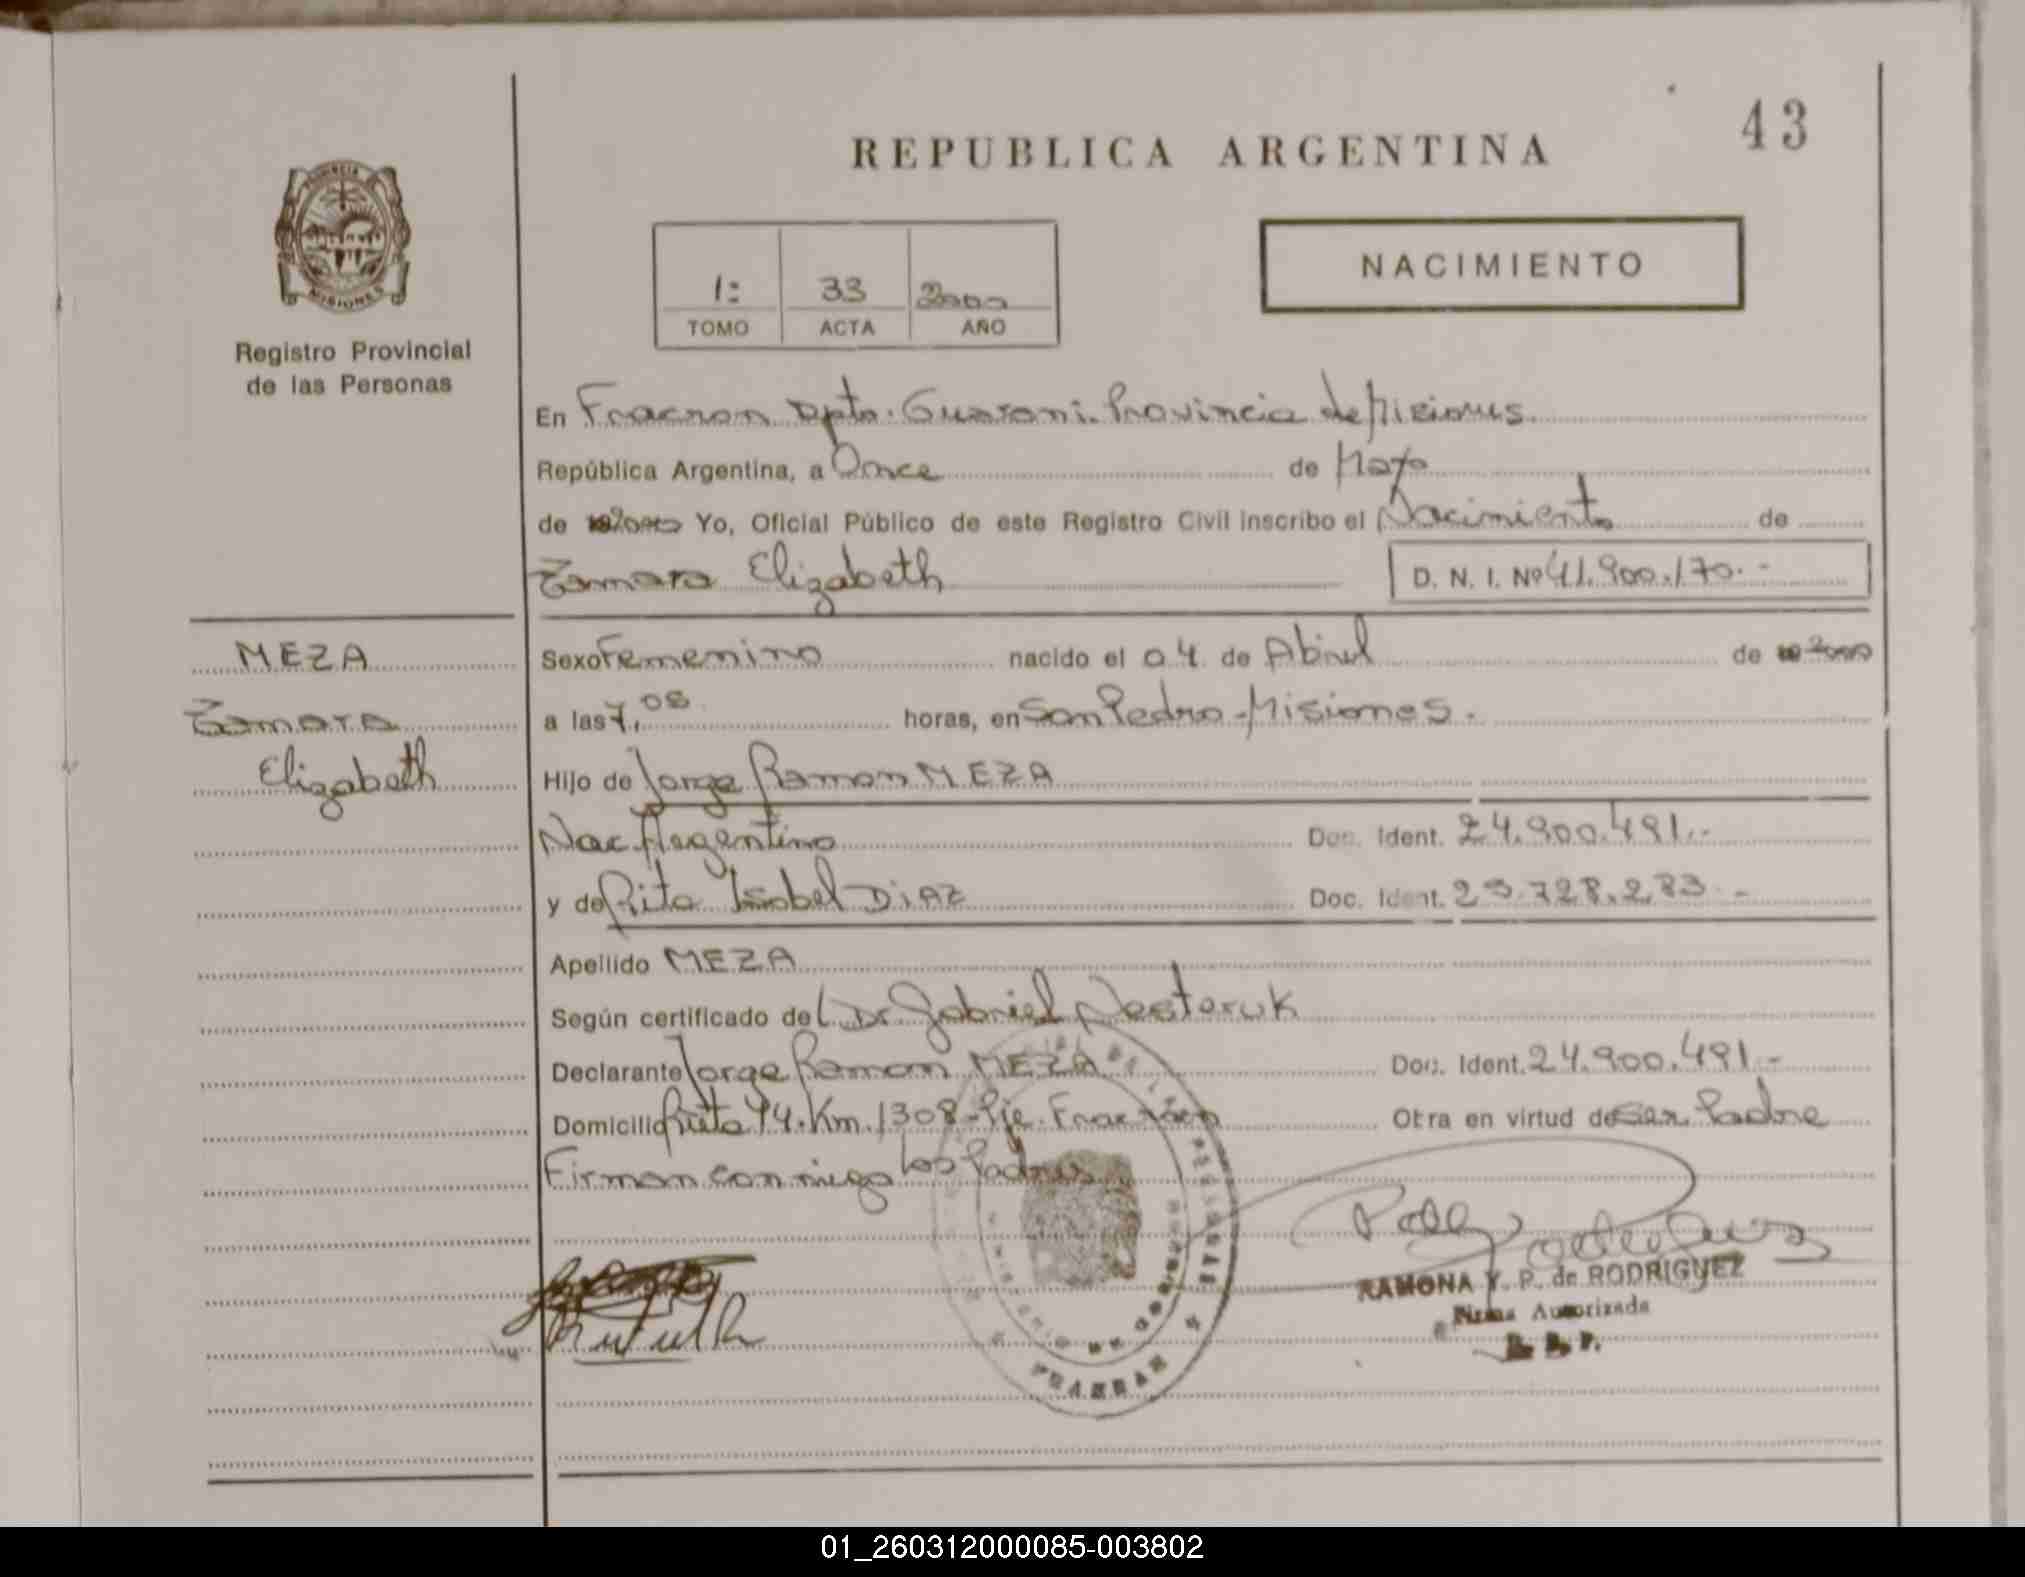 43
REPUBLICA ARGENTINA
PROVINCIA
MISIONES
Registro Provincial
de las Personas
1: 33 2000
TOMO ACTA AÑO
NACIMIENTO
En Fracran Dpto. Guarani. Provincia de Misiones
República Argentina, a Once de Mayo
de 2000 Yo, Oficial Público de este Registro Civil inscribo el Nacimiento de
Tamara Elizabeth
D. N. I. Nº 41.900.170.-
MEZA
Tamara
Elizabeth
Sexo Femenino nacido el 04 de Abril de 2000
a las 7,08 horas, en San Pedro - Misiones.
Hijo de Jorge Ramon MEZA
Nac. Argentino Doc. Ident. 24.900.491.-
y de Rita Isabel DiAZ Doc. Ident. 23.728.283.-
Apellido MEZA
Según certificado de Dr Gabriel Nesteruk
Declarante Jorge Ramon MEZA Doc. Ident. 24.900.491.-
Domicilio Ruta 14. Km. 1308 - Pje. Fracran Otra en virtud de Ser Padre
Firman conmigo los Padres
RAMONA Y. P. de RODRIGUEZ
Firma Autorizada
R. P. P.
FRACRAN
01_260312000085-003802